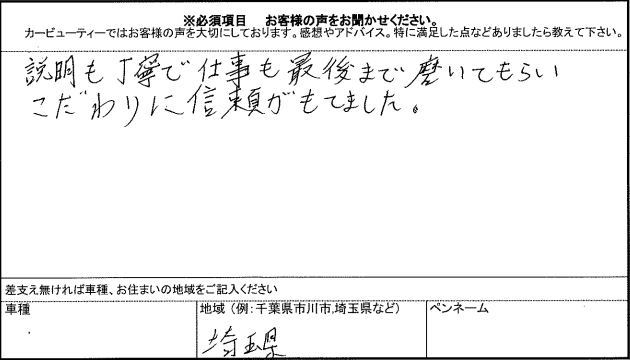 ※必須項目 お客様の声をお聞かせください。
カービューティーではお客様の声を大切にしております。感想やアドバイス。特に満足した点などありましたら教えて下さい。
説明も丁寧で仕事も最後まで磨いてもらい
こだわりに信頼がもてました。
差支え無ければ車種、お住まいの地域をご記入ください
車種 地域 (例:千葉県市川市,埼玉県など) ペンネーム
埼玉県